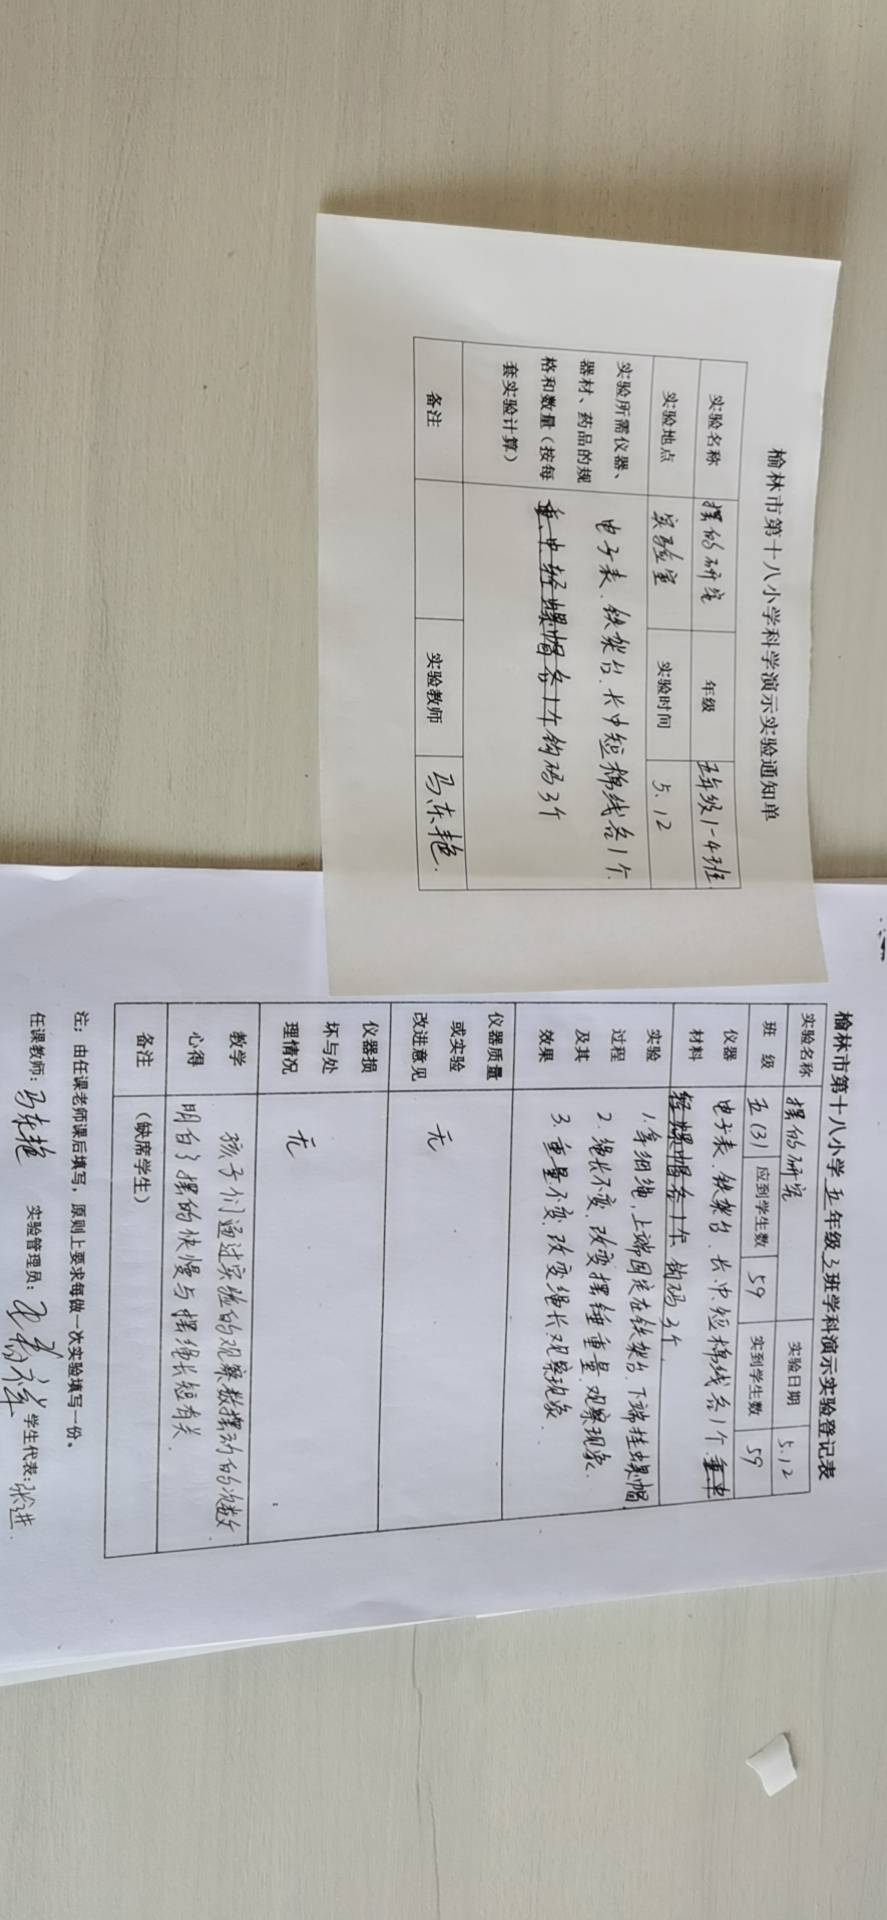 榆林市第十八小学科学演示实验通知单
实验名称 摆的研究 年级 五年级1-4班
实验地点 实验室 实验时间 5.12
实验所需仪器、器材、药品的规格和数量（按每套实验计算）
电子表、铁架台、长中短棉线各1个
重、中轻螺帽各1个 钩码3个
备注 实验教师 马东艳
榆林市第十八小学五年级3班学科演示实验登记表
实验名称 摆的研究 实验日期 5.12
班 级 五(3) 应到学生数 59 实到学生数 59
仪器材料
电子表、铁架台、长、中、短棉线各1个、重中
轻螺帽各1个、钩码3个
实验过程及其效果
1.拿细绳,上端固定在铁架台、下端挂螺帽
2.绳长不变,改变摆锤重量,观察现象.
3.重量不变,改变绳长,观察现象.
仪器质量或实验改进意见 无
仪器损坏与处理情况 无
教学心得
孩子们通过实验的观察数摆动的次数
明白了摆的快慢与摆绳长短有关.
备注 （缺席学生）
注：由任课老师课后填写，原则上要求每做一次实验填写一份。
任课教师：马东艳 实验管理员： 学生代表：张进